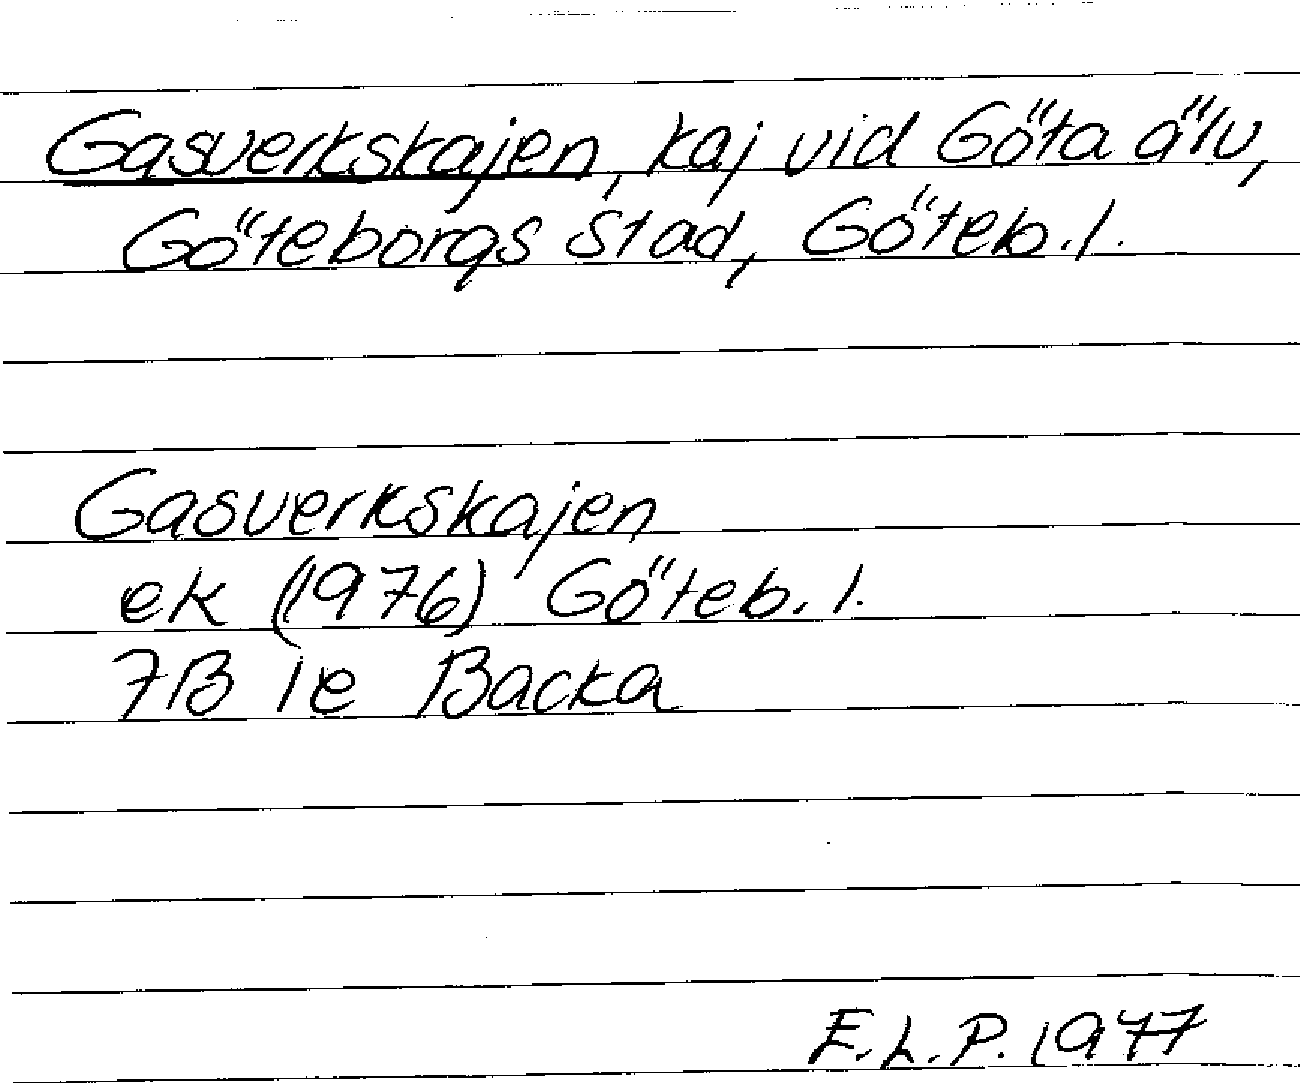 Gasverkskajen, kaj vid Göta älv,
Göteborgs stad, Göteb. l.
Gasverkskajen
ek (1976) Göteb. l.
7B 1e Backa
E.L.P. 1977